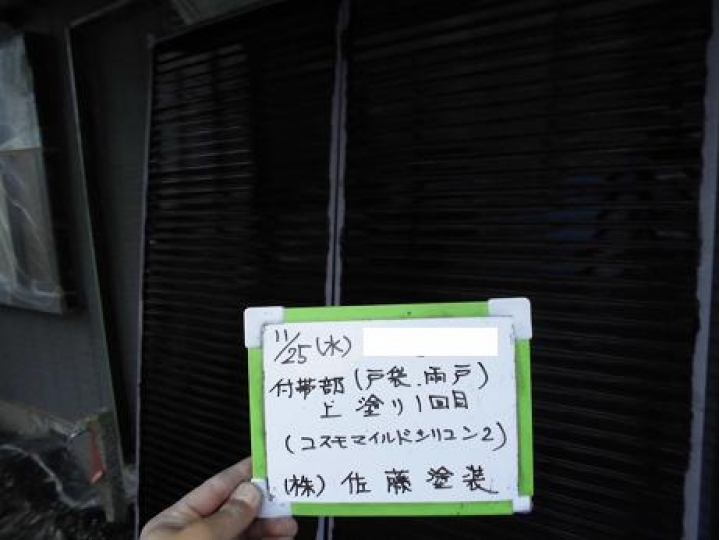 11/25(水)
付帯部(戸袋.雨戸)
上塗り1回目
(コスモマイルドシリコン2)
(株)佐藤塗装